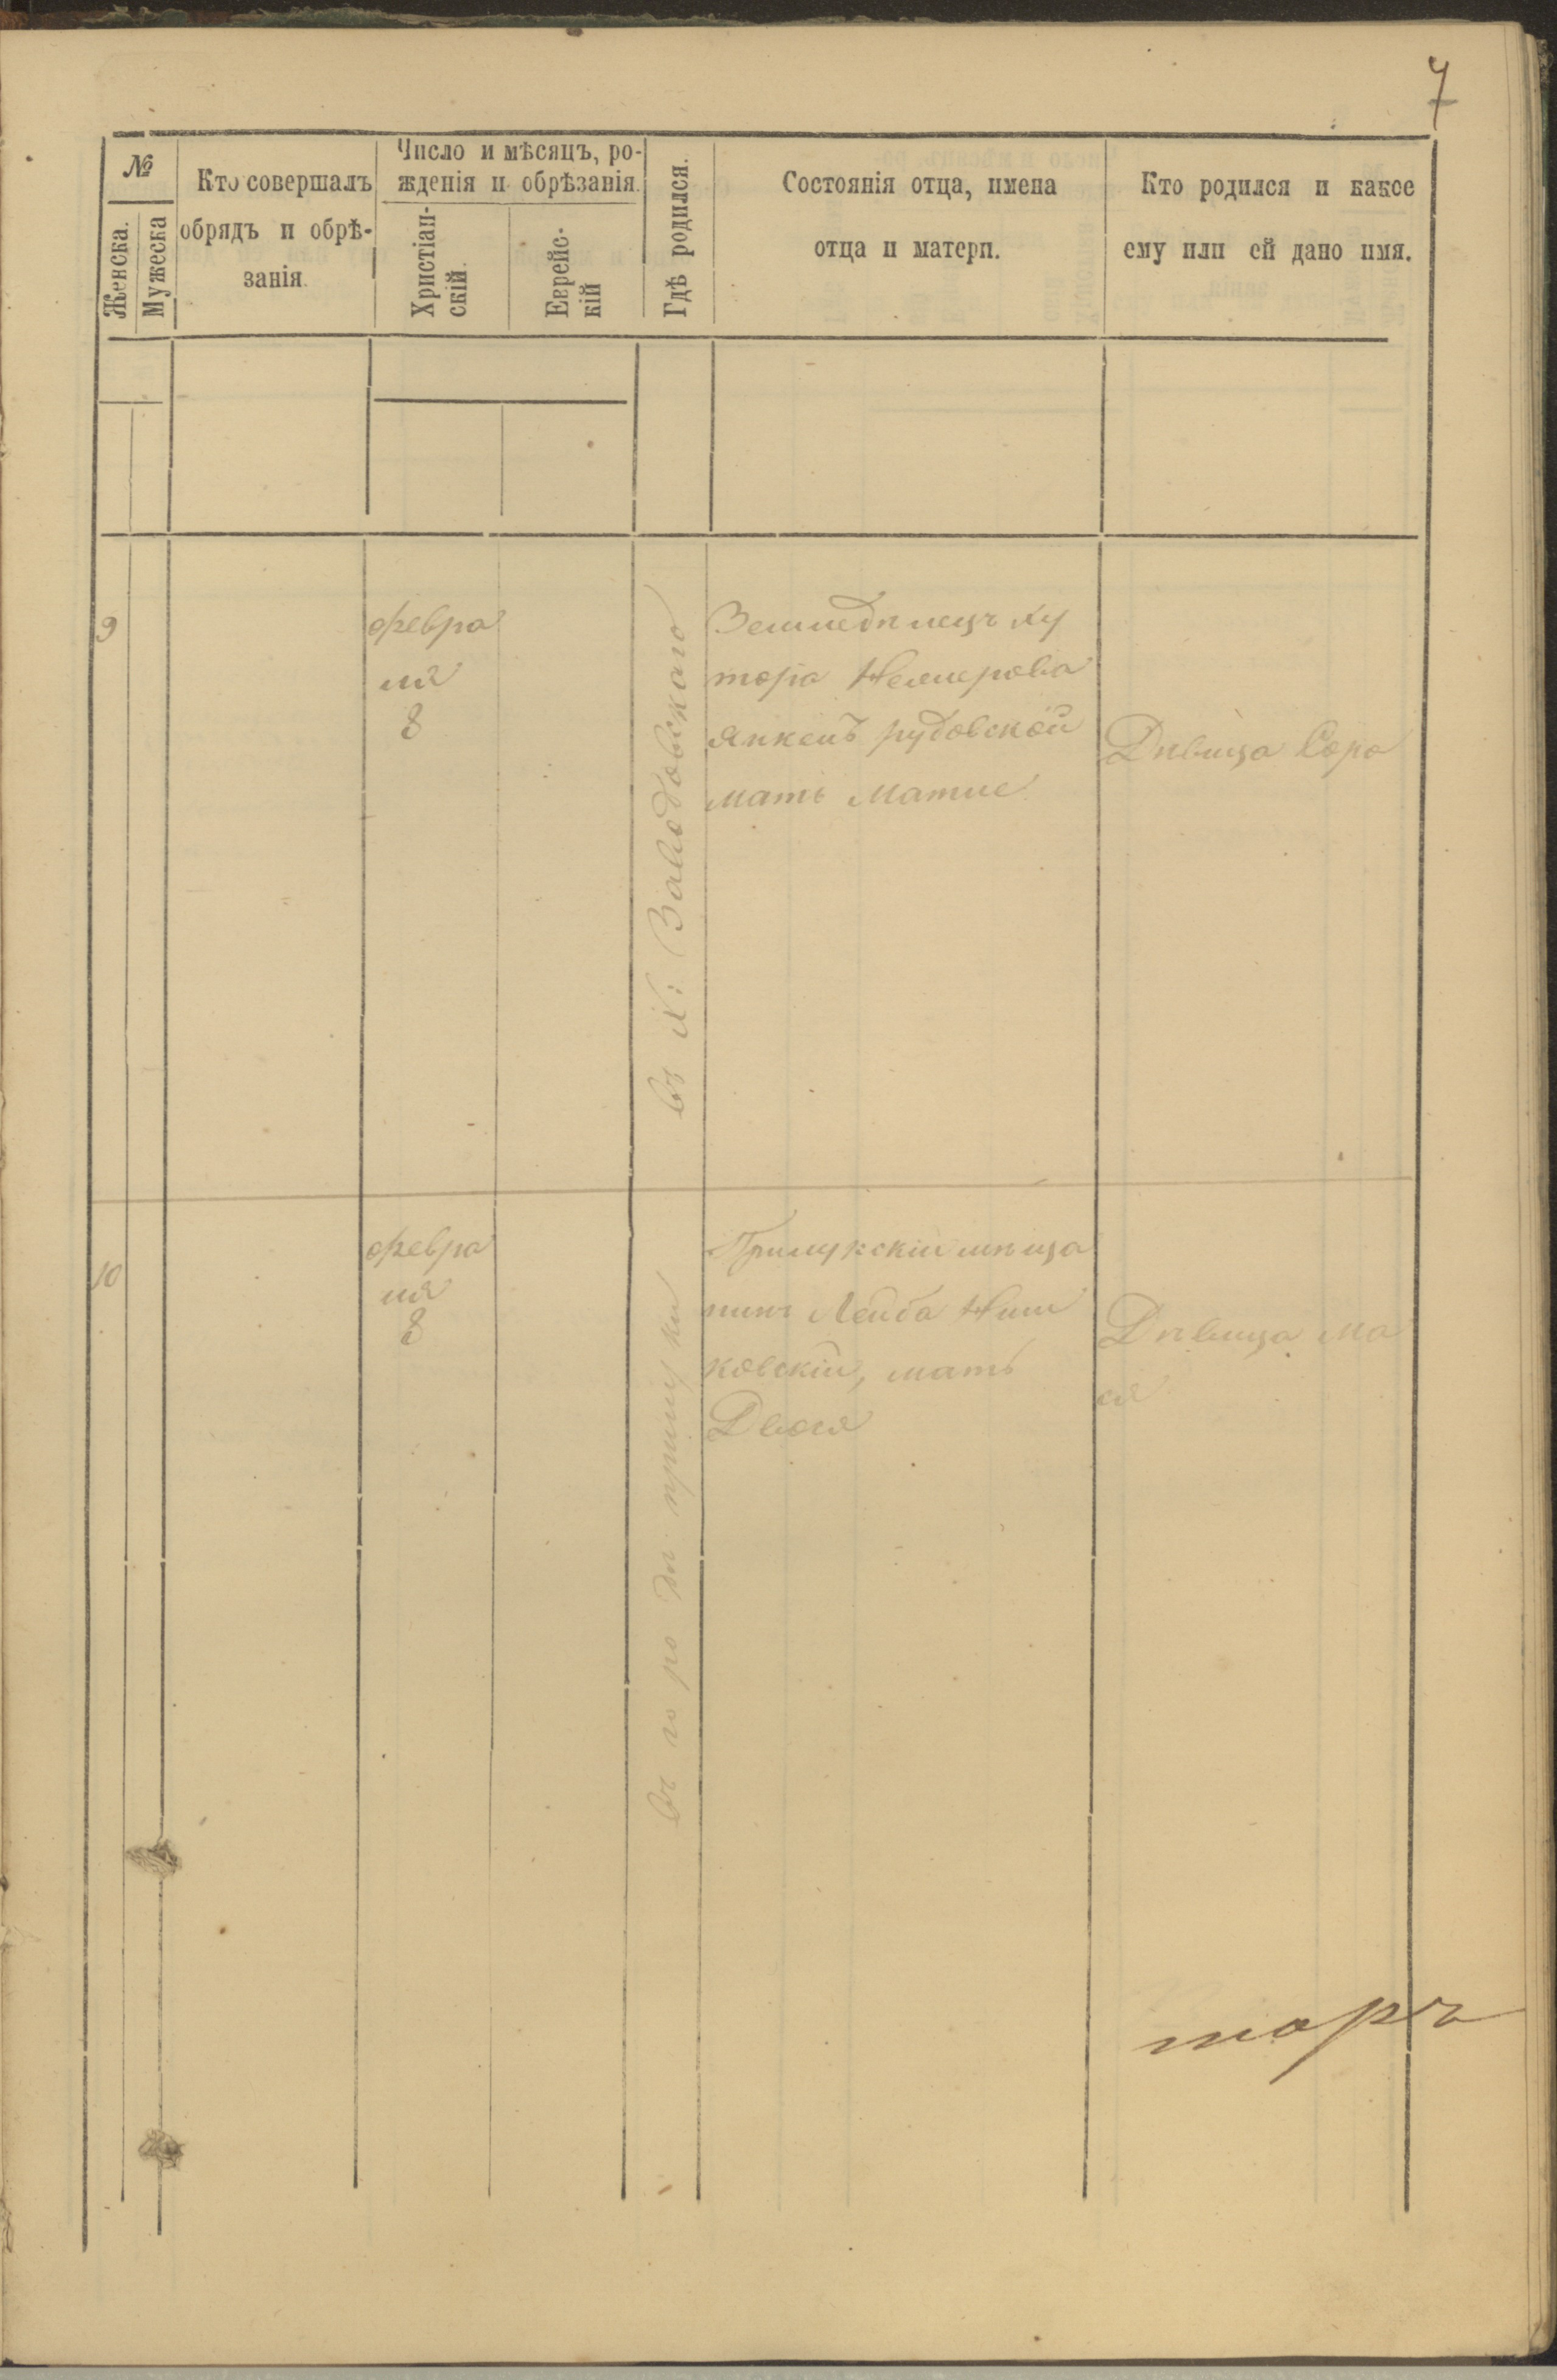 7
№
Женска.
Мужеска
Кто совершалъ
обрядъ и обрѣ-
занія.
Число и мѣсяцъ, ро-
жденія и обрѣзанія.
Христіан-
скій.
Еврейс-
кій
Гдѣ родился.
Состоянія отца, имена
отца и матери.
Кто родился и какое
ему или ей дано имя.
9
февра
ля
8
въ К:
Земледѣлецъ ху
тора Немерова
Янкель рудовской
мать Матле
Дѣвица Сора
10
февра
ля
8
въ го ро дѣ прилуки
Прилукскій мѣща
нинъ Лейба
ковскій, мать
Двося
Дѣвица Ма
ся